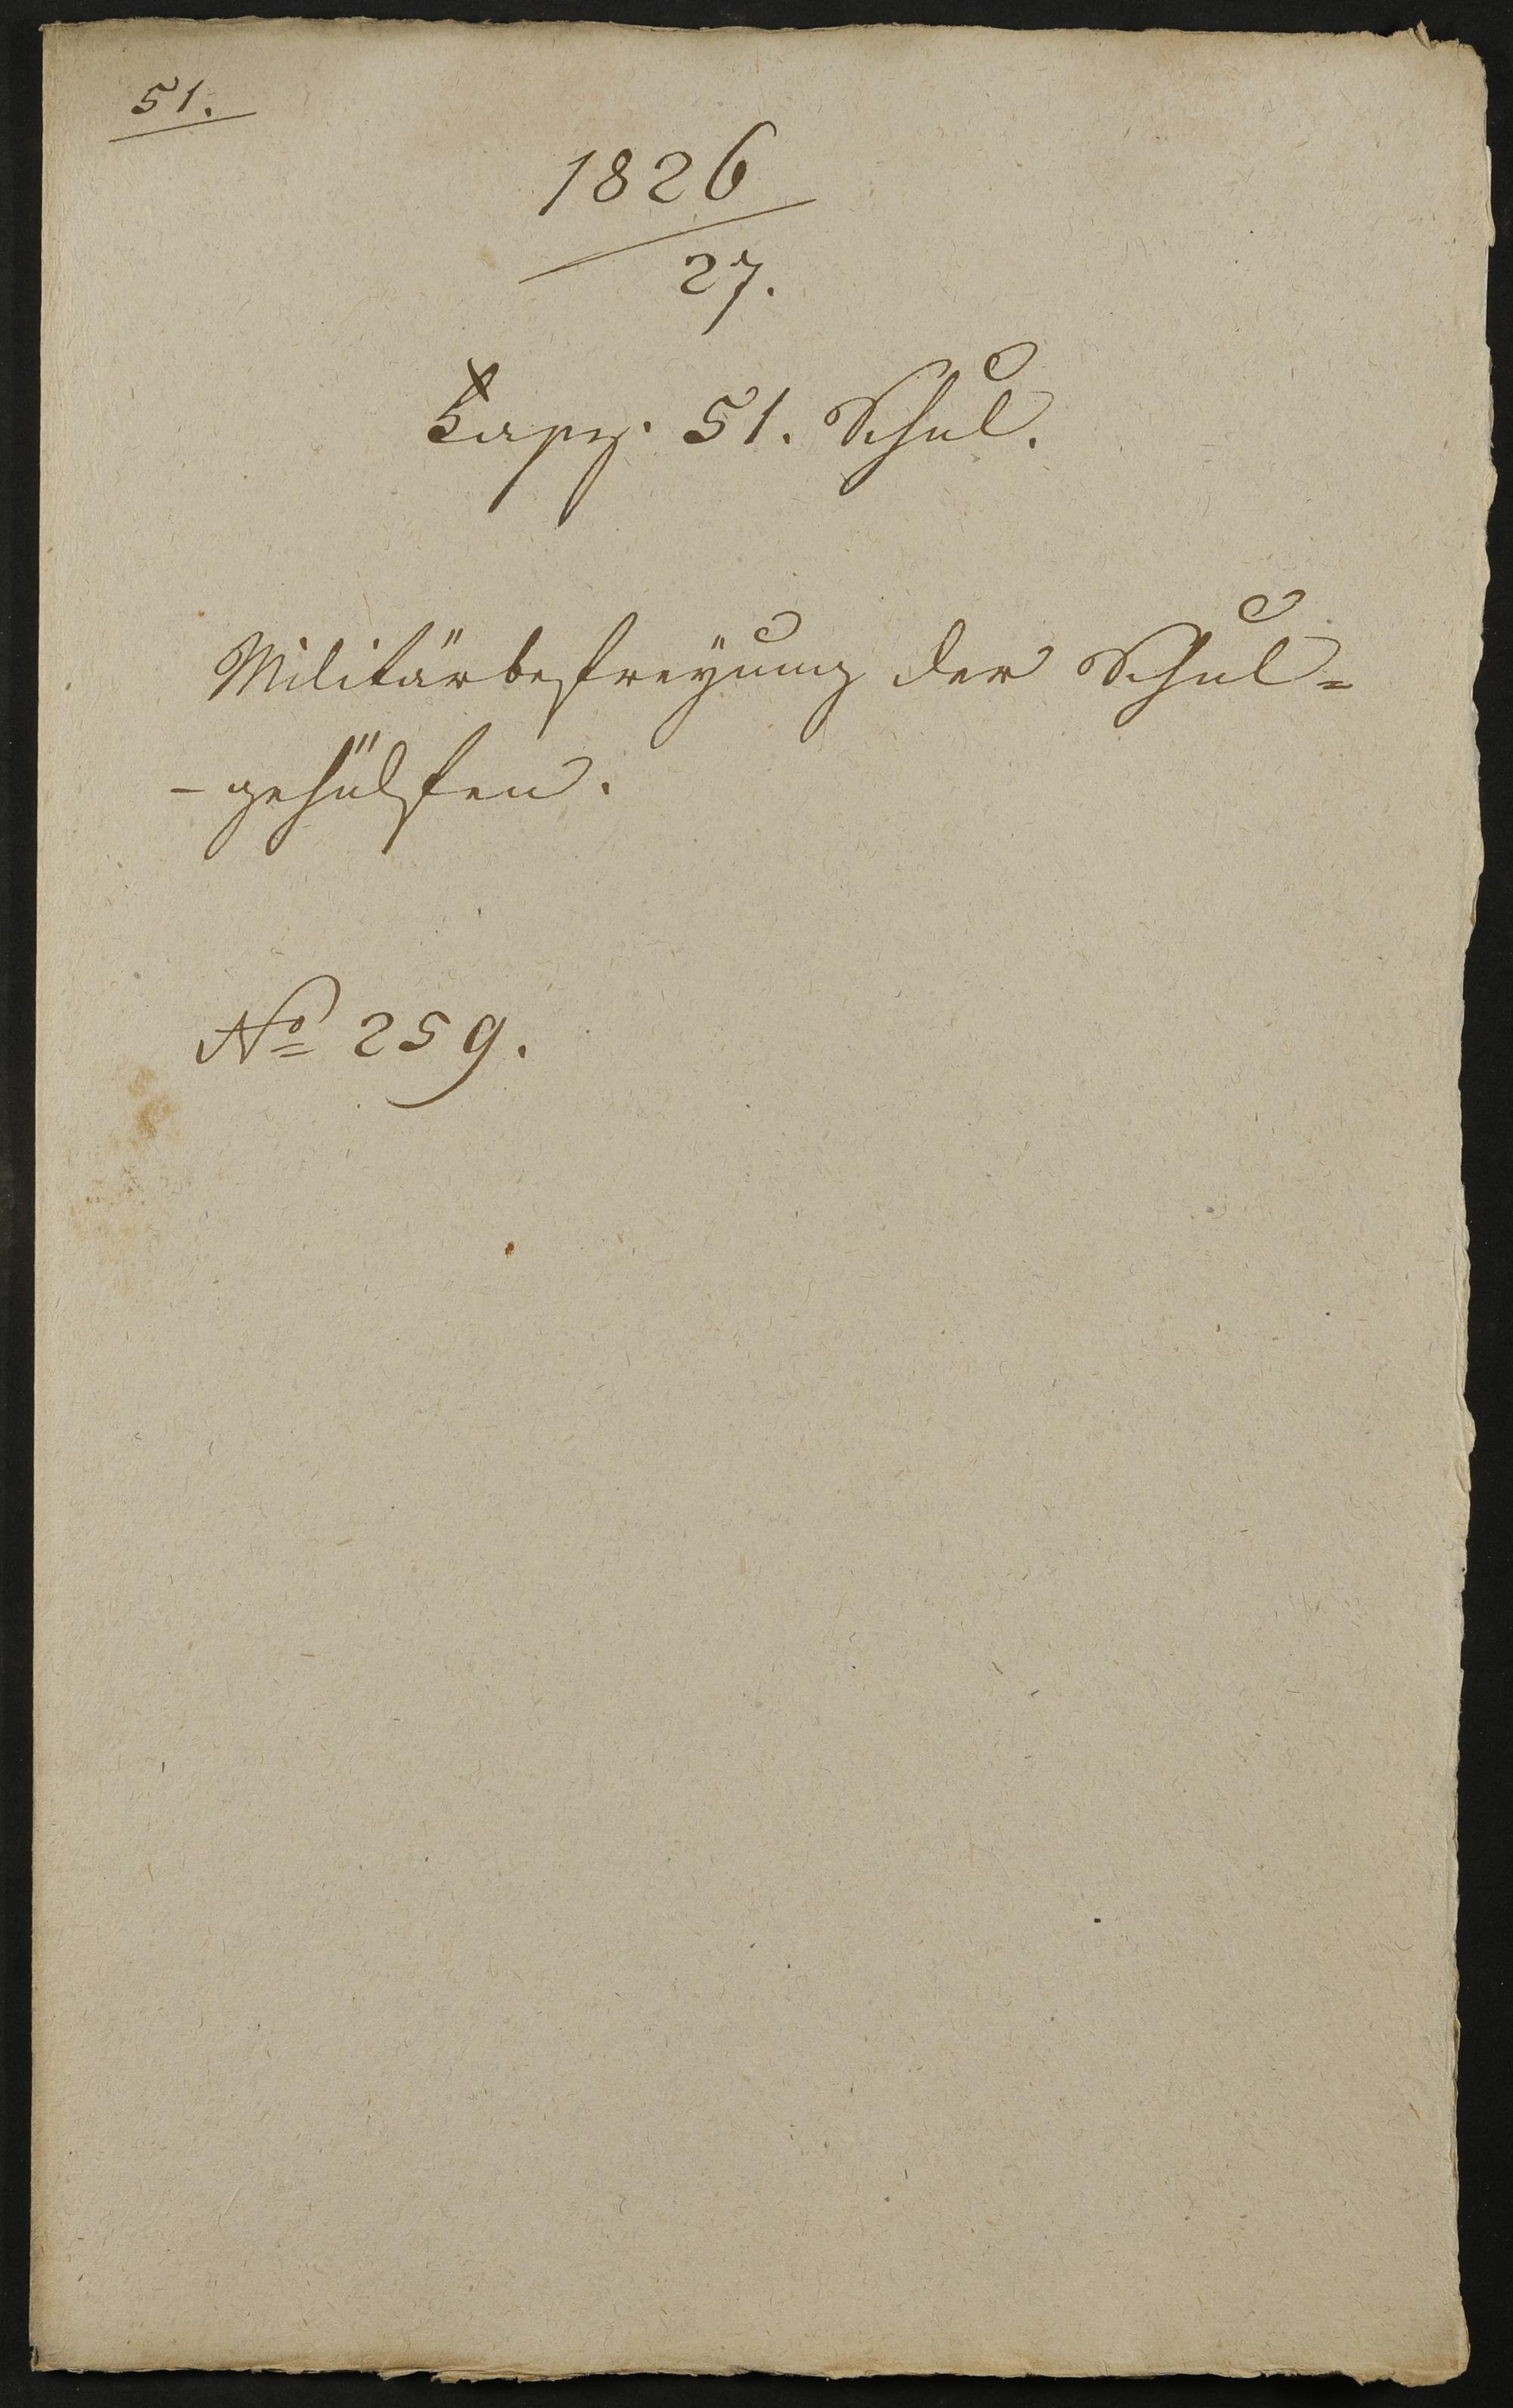 51.
1826
27.
Kapz. 51. Schul.
Militärbefreyung der Schul=
-gehülfen.
No 259.